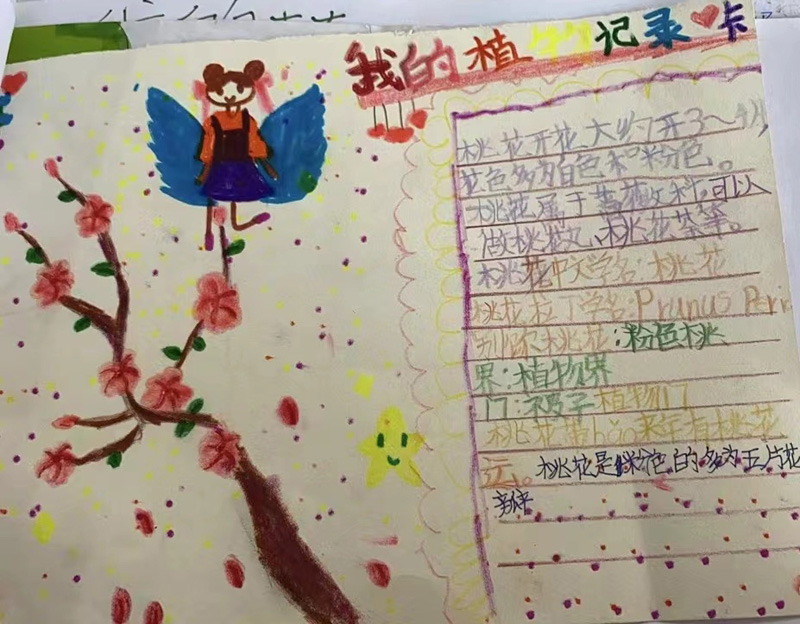 我的植物记录卡
桃花开花大约7开3～4月,
花色多为白色和粉色。
桃花属于蔷薇科,可以
做桃花、桃花茶等。
桃花中文学名:桃花
桃花拉丁学名:Prunus Per
别称桃花:粉色桃
界:植物界
门:被子植物门
桃花带hǎo来年有桃花
运。桃花是粉色的多为五片花